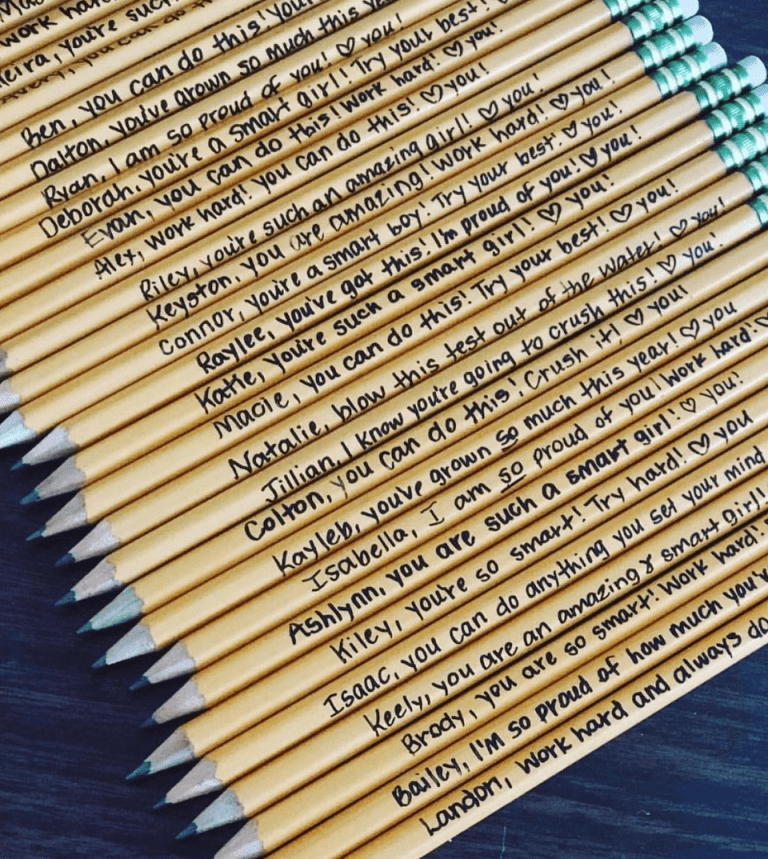 work hard
eira, you're such
Avery, you can do this!
Ben, you can do this! You
Dalton, you've grown so much this ye
Ryan, I am so proud of you! ♡ you!
Deborah, you're a smart girl! Try your best!
Evan, you can do this! Work hard! ♡ you!
Alex, work hard! You can do this! ♡ you!
Riley, you're such an amazing girl! ♡ you!
Keyston, you are amazing! Work hard! ♡ you!
Connor, you're a smart boy! Try your best! ♡ you!
Raylee, you've got this! I'm proud of you! ♡ you!
Katie, you're such a smart girl! ♡ you!
Macie, you can do this! Try your best! ♡ you!
Natalie, blow this test out of the water! ♡ you!
Jillian, I know you're going to crush this! ♡ you!
Colton, you can do this! Crush it! ♡ you!
Kayleb, you've grown so much this year! ♡ you
Isabella, I am so proud of you! Work hard! ♡
Ashlynn, you are such a smart girl! ♡ you!
Kiley, you're so smart! Try hard! ♡ you
Isaac, you can do anything you set your mind
Keely, you are an amazing & smart girl!
Brody, you are so smart! Work hard!
Bailey, I'm so proud of how much you'v
Landon, work hard and always do